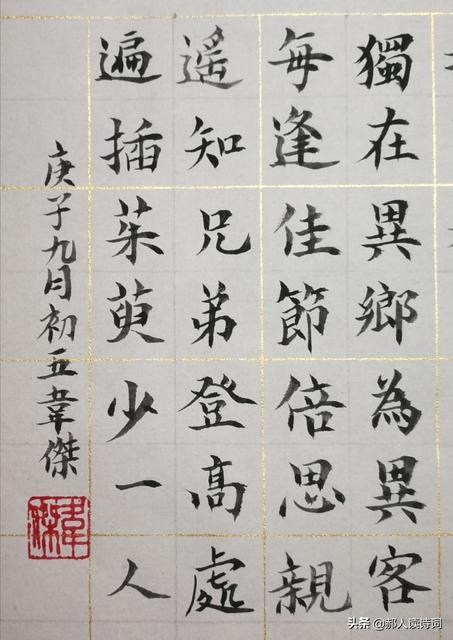 獨在異鄉為異客
每逢佳節倍思親
遙知兄弟登高處
遍插茱萸少一人
庚子九月初五韋傑
韋傑
头条 @郝人读诗词